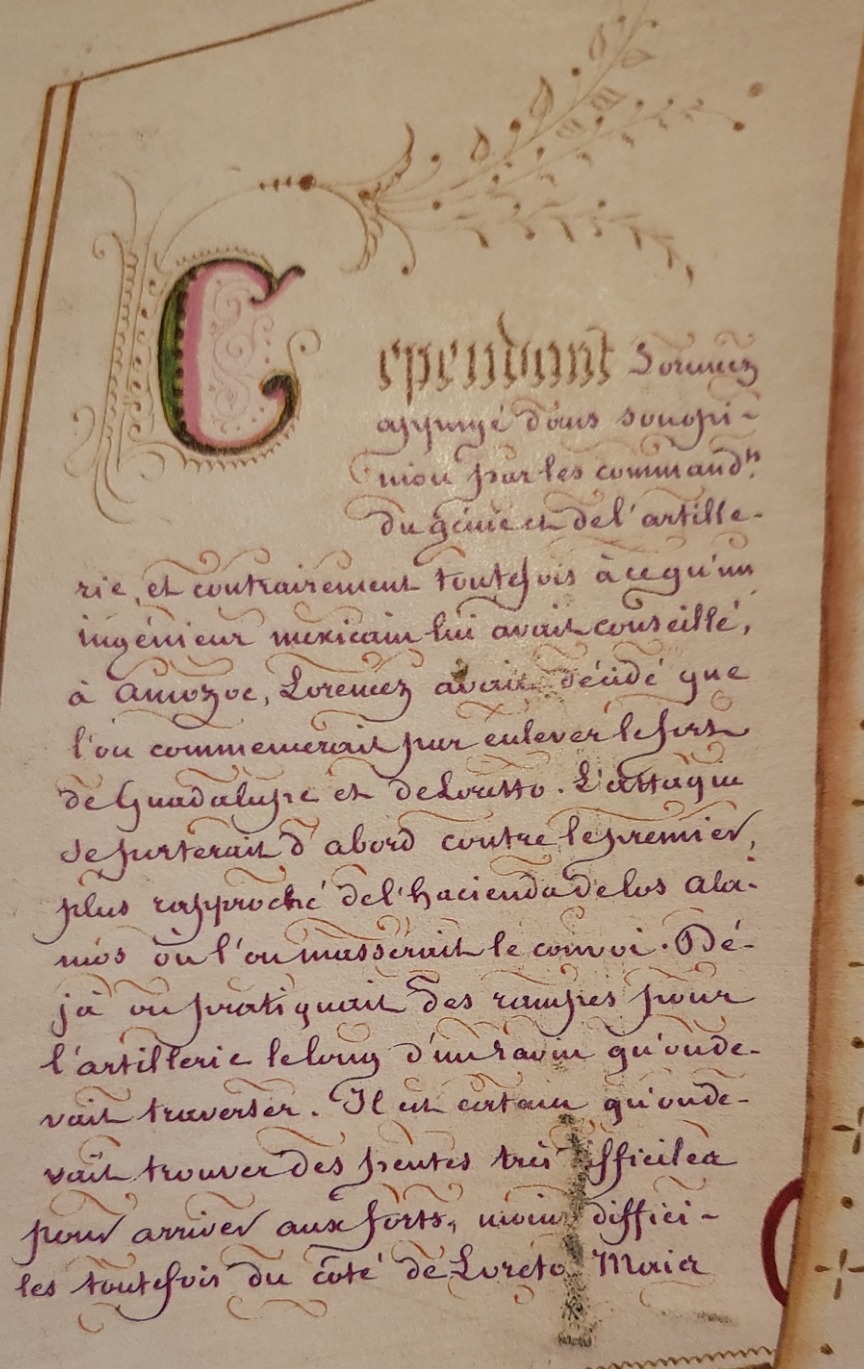 Cependant Lorencez
appuyé dans son opi-
nion par les command.ts
du génie et de l'artille-
rie, et contrairement toutefois à ce qu'un
ingénieur mexicain lui avait conseillé,
à Amozoc, Lorencez avait décidé que
l'on commencerait par enlever les forts
de Guadalupe et de Loretto. L'attaque
se porterait d'abord contre le premier,
plus rapproché de l'hacienda de los Ala-
mos où l'on masserait le convoi. Dé-
jà on pratiquait des rampes pour
l'artillerie le long d'un ravin qu'on de-
vait traverser. Il est certain qu'on de-
vait trouver des pentes très difficiles
pour arriver aux forts, moins diffici-
les toutefois du côté de Loreto. Mais